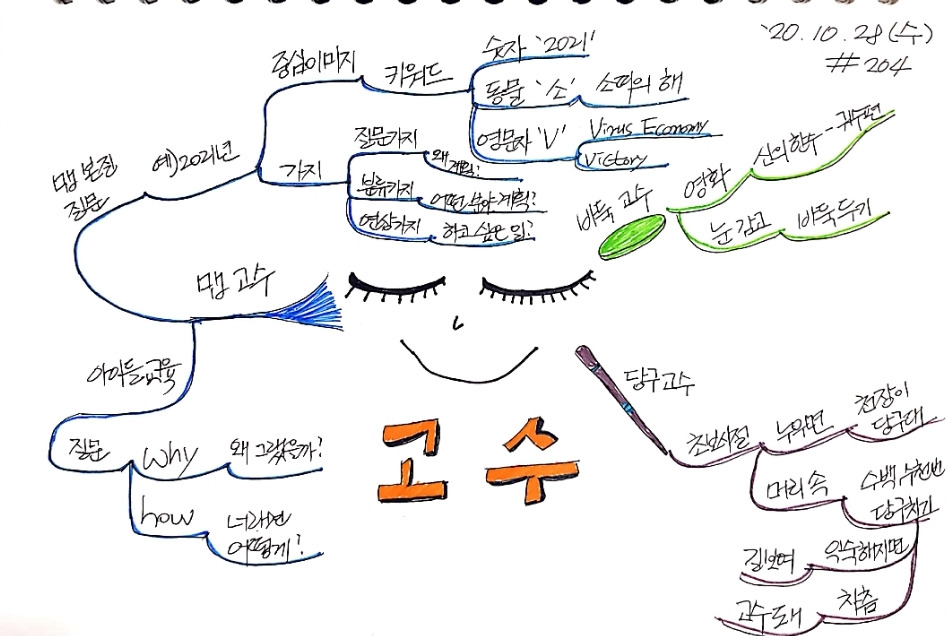 '20.10.28(수)
#204
고수
맵 고수
맵 본질
질문
예)2021년
중심이미지
키워드
숫자 '2021'
동물 '소'
소띠의 해
영문자 'V'
Virus Economy
Victory
가지
질문가지
왜
계획?
분류가지
어떤 분야 계획?
연상가지
하고 싶은 일?
아이들 교육
질문
Why
왜 그랬을까?
how
너라면
어떻게?
바둑 고수
영화
신의한수--귀수편
눈 감고
바둑 두기
당구고수
초보시절
누우면
천장이
당구대
머리 속
수백 수천번
당구치기
익숙해지면
길보여
차츰
고수 도래